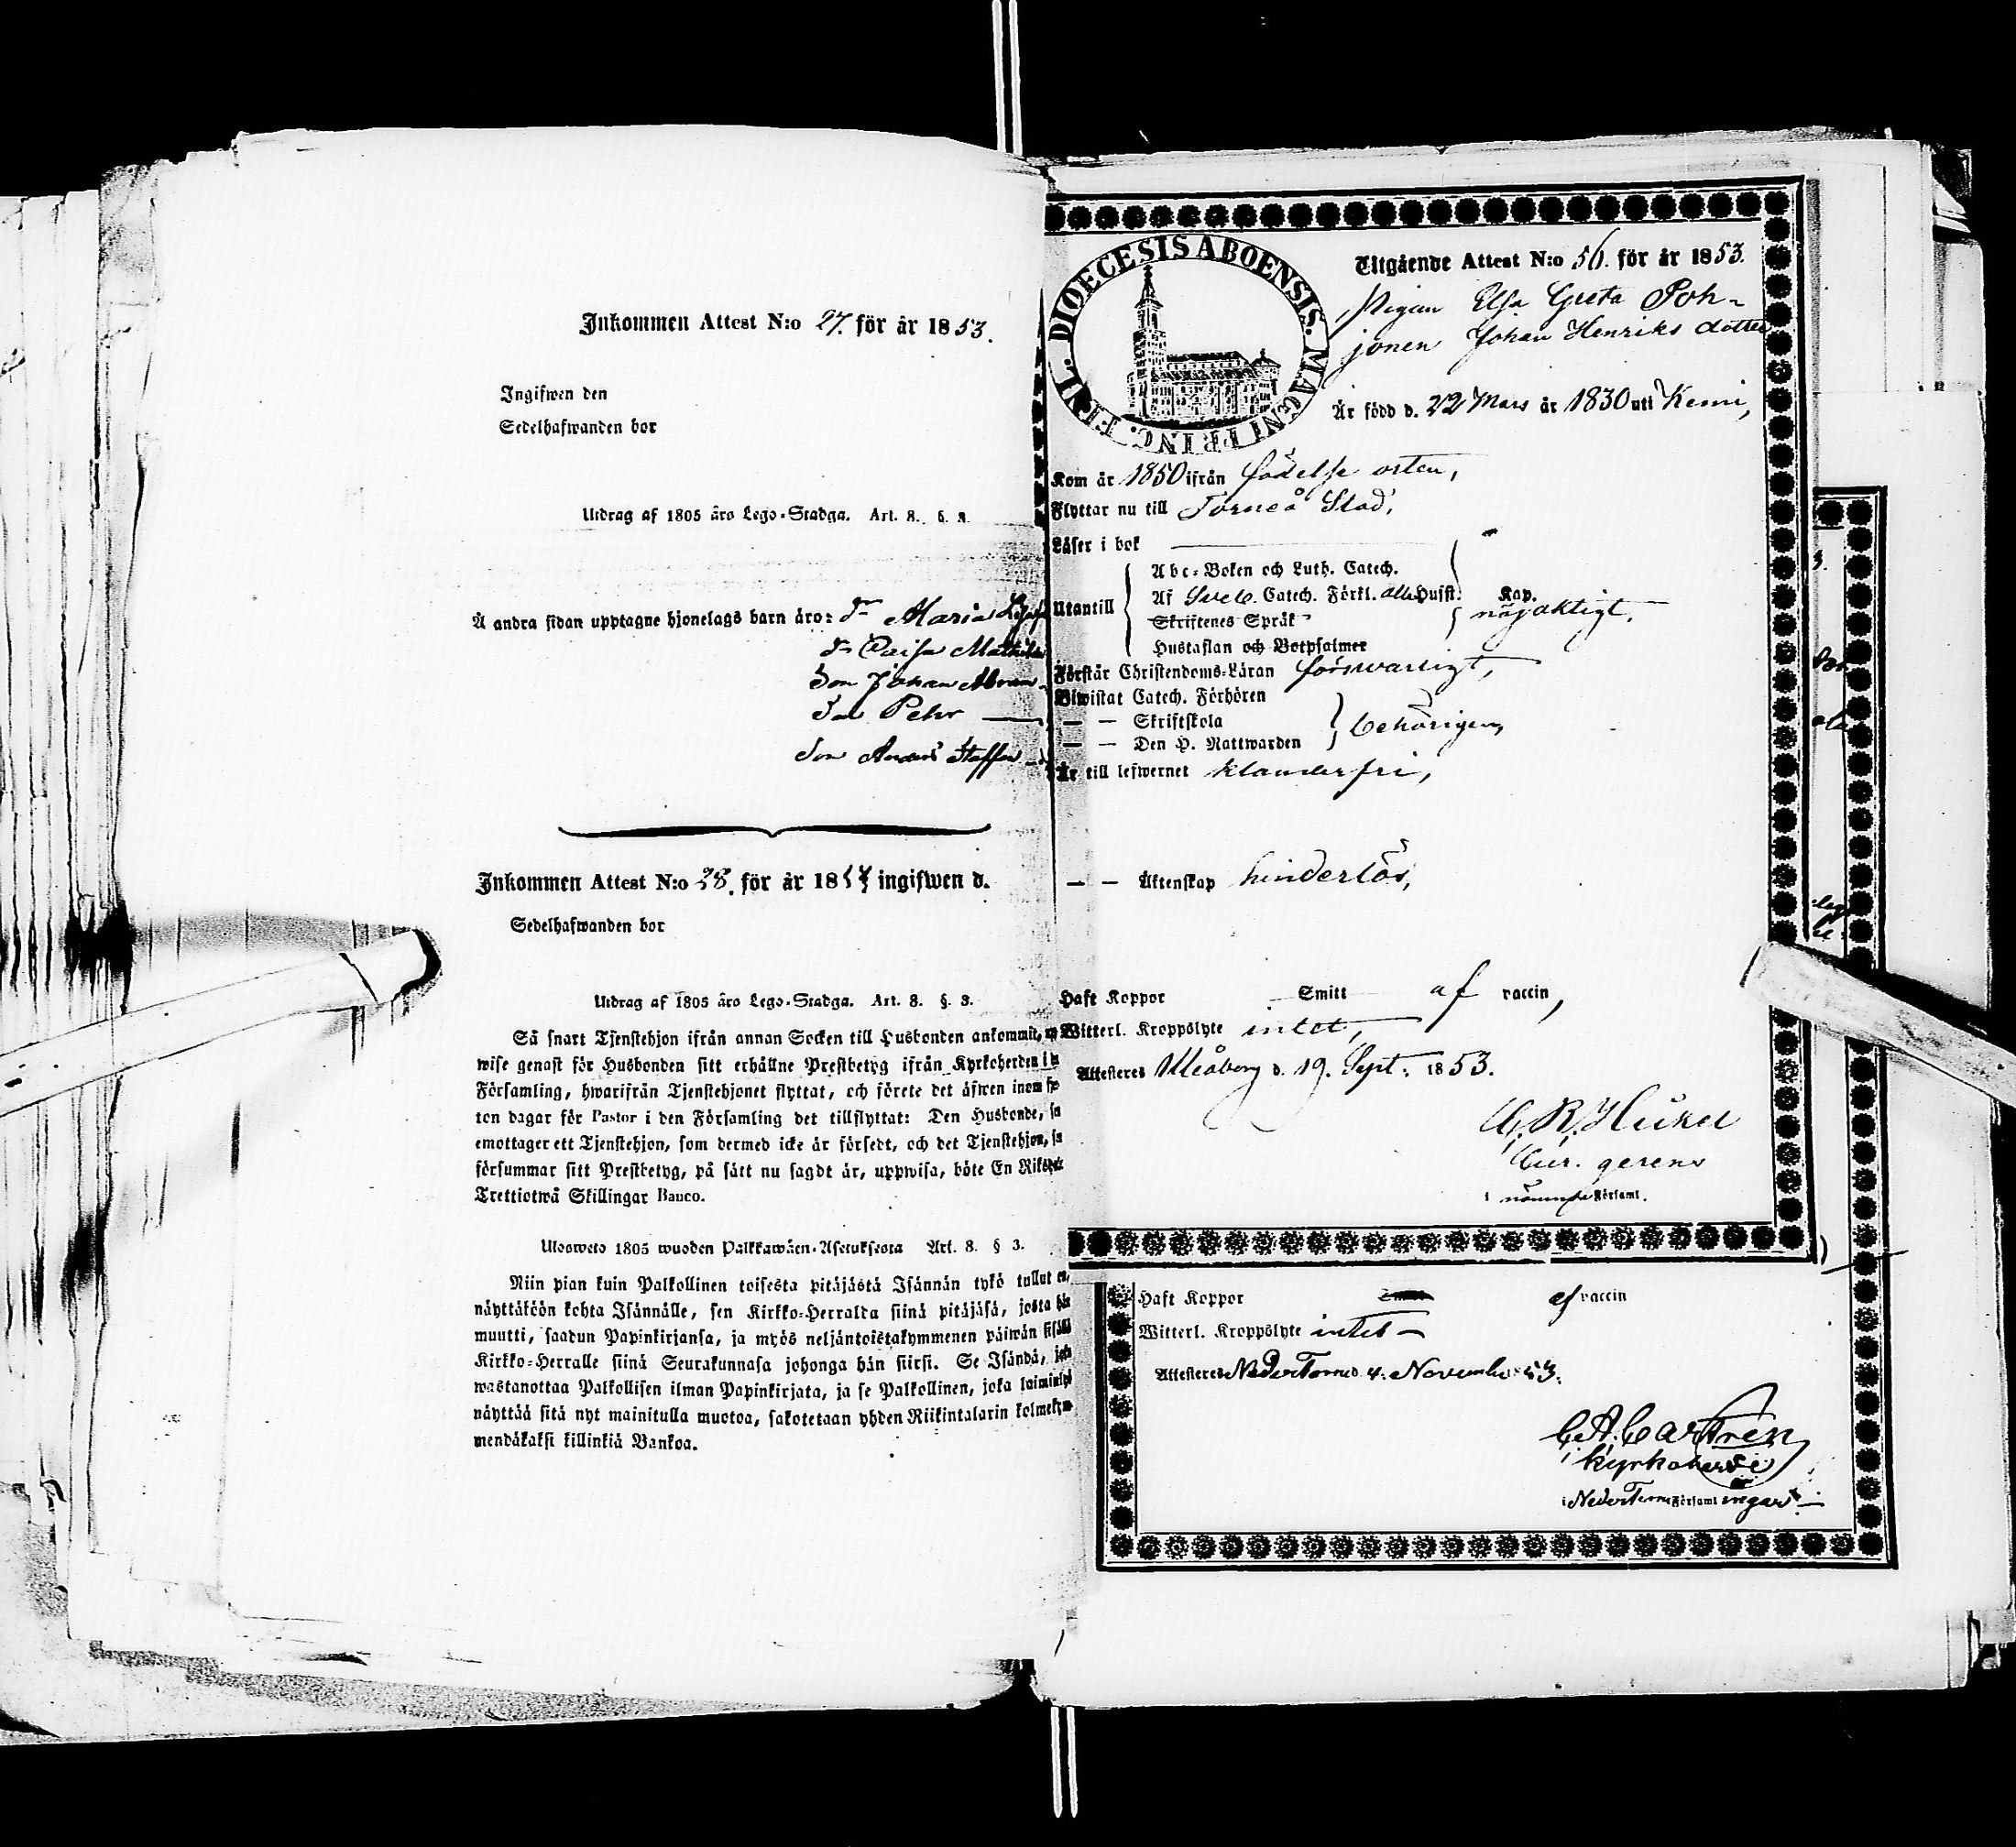 Inkommen Attest N:o 27. för år 1853.
Ingifwen den
Sedelhafwanden bor
Utdrag af 1805 års Lego-Stadga. Art. 8. §. 3.
Å andra sidan upptagne hjonelags barn äro: dr Maria
dr Caisa Mathilda
Son Johan Abram
Son Pehr
Son Anders Staffan
Inkommen Attest N:o 28. för år 1853 ingifwen d.
Sedelhafwanden bor
Utdrag af 1805 års Lego-Stadga. Art. 8. §. 3.
Så snart Tjenstehjon ifrån annan Socken till Husbonden ankommit, up
wise genast för Husbonden sitt erhållne Prestbetyg ifrån Kyrkoherden i
Församling, hwarifrån Tjenstehjonet flyttat, och förete det äfwen inom fjo
ton dagar för Pastor i den Församling det tillflyttat: Den Husbonde, so
emottager ett Tjenstehjon, som dermed icke är försedt, och det Tjenstehjon, so
försummar sitt Prestbetyg, på sätt nu sagdt är, uppwisa, böte En Riksda
Trettiotwå Skillingar Banco.
Ulosweto 1805 wuoden Palkkawäen-Asetuksesta Art. 8. § 3.
Niin pian kuin Palkollinen toisesta pitäjästä Isännän tykö tullut on,
näyttäköön kohta Isännälle, sen Kirkko-Herralda siinä pitäjäsä, josta hän
muutti, saadun Papinkirjansa, ja myös neljäntoistakymmenen päiwän sisällä
Kirkko-Herralle siinä Seurakunnasa johonga hän siirsi. Se Isändä, joka
wastanottaa Palkollisen ilman Papinkirjata, ja se Palkollinen, joka laiminlyö
näyttää sitä nyt mainitulla muotoa, sakotetaan yhden Riikintalarin kolmekym
mendäkaksi killinkiä Bankoa.
DIOECESIS ABOENSIS. MAGNI PRINC. FINL.
Utgående Attest N:o 56. för år 1853.
Pigan Elsa Greta Poh-
jonen Johan Henriks dotter
Är född d. 22 Mars år 1830 uti Kemi,
Kom år 1850 ifrån födelse orten,
Flyttar nu till Torneå Stad,
Läser i bok
Abc-Boken och Luth. Catech.
Utantill Af Sveb. Catech. Förkl. alla Hufst. Kap.
nöjaktigt.
Skriftenes Språk
Hustaflan och Botpsalmer
Förstår Christendoms-Läran försvarligt,
Biwistat Catech. Förhören
— — Skriftskola behörigen,
— — Den H. Nattwarden
Är till lefwernet klanderfri,
— — Äktenskap hinderlös,
Haft Koppor Smitt af vaccin,
Witterl. Kroppslyte intet,
Attesteras Uleåborg d. 19. Sept. 1853.
Cur. gerens
i nämnde Församl.
Haft Koppor af vaccin
Witterl. Kroppslyte intet
Attesteras NederTorneå d. 4. November 53.
C. A. Castrén
Kyrkoherde
i NederTorneå Församlingar